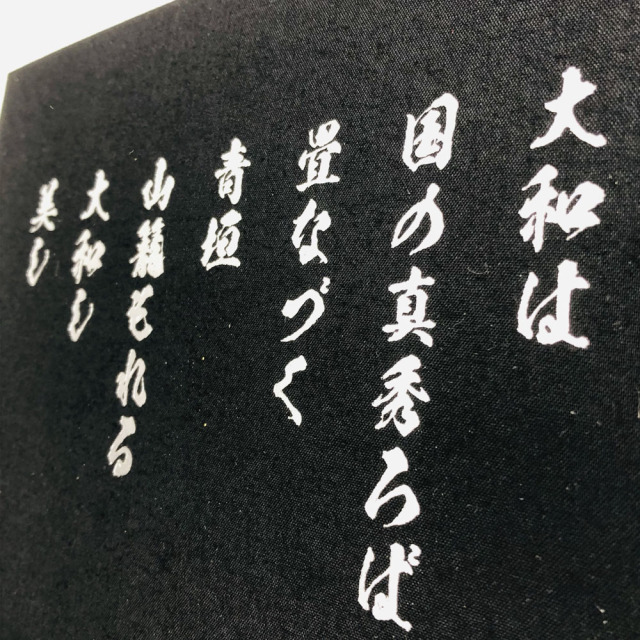 大和は
国の真秀ろば
畳なづく
青垣
山籠もれる
大和し
美し